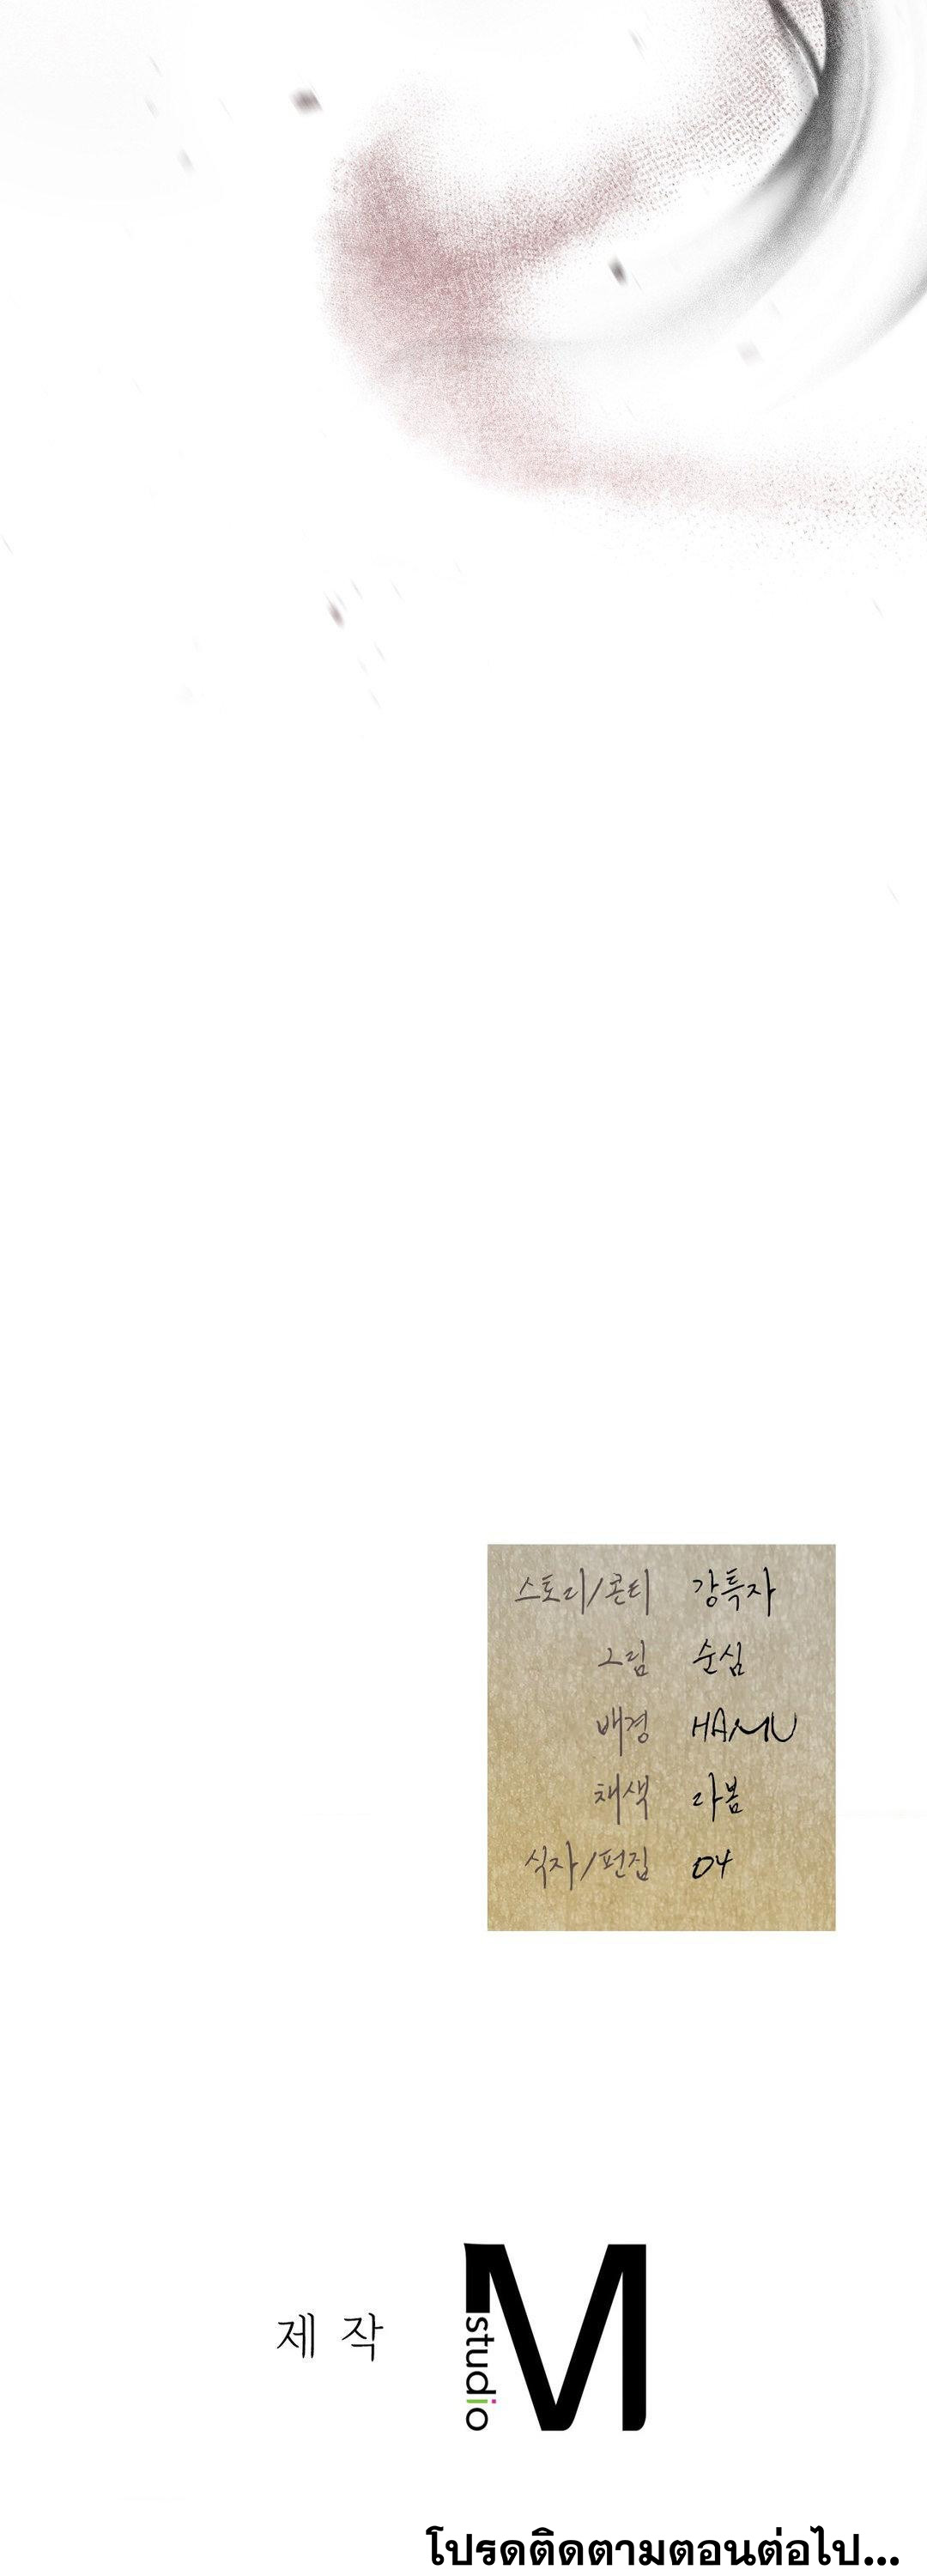 스토리/콘티 강특자
그림 순심
배경 HAMU
채색 라봄
식자/편집 04
제작
M studio
โปรดติดตามตอนต่อไป...